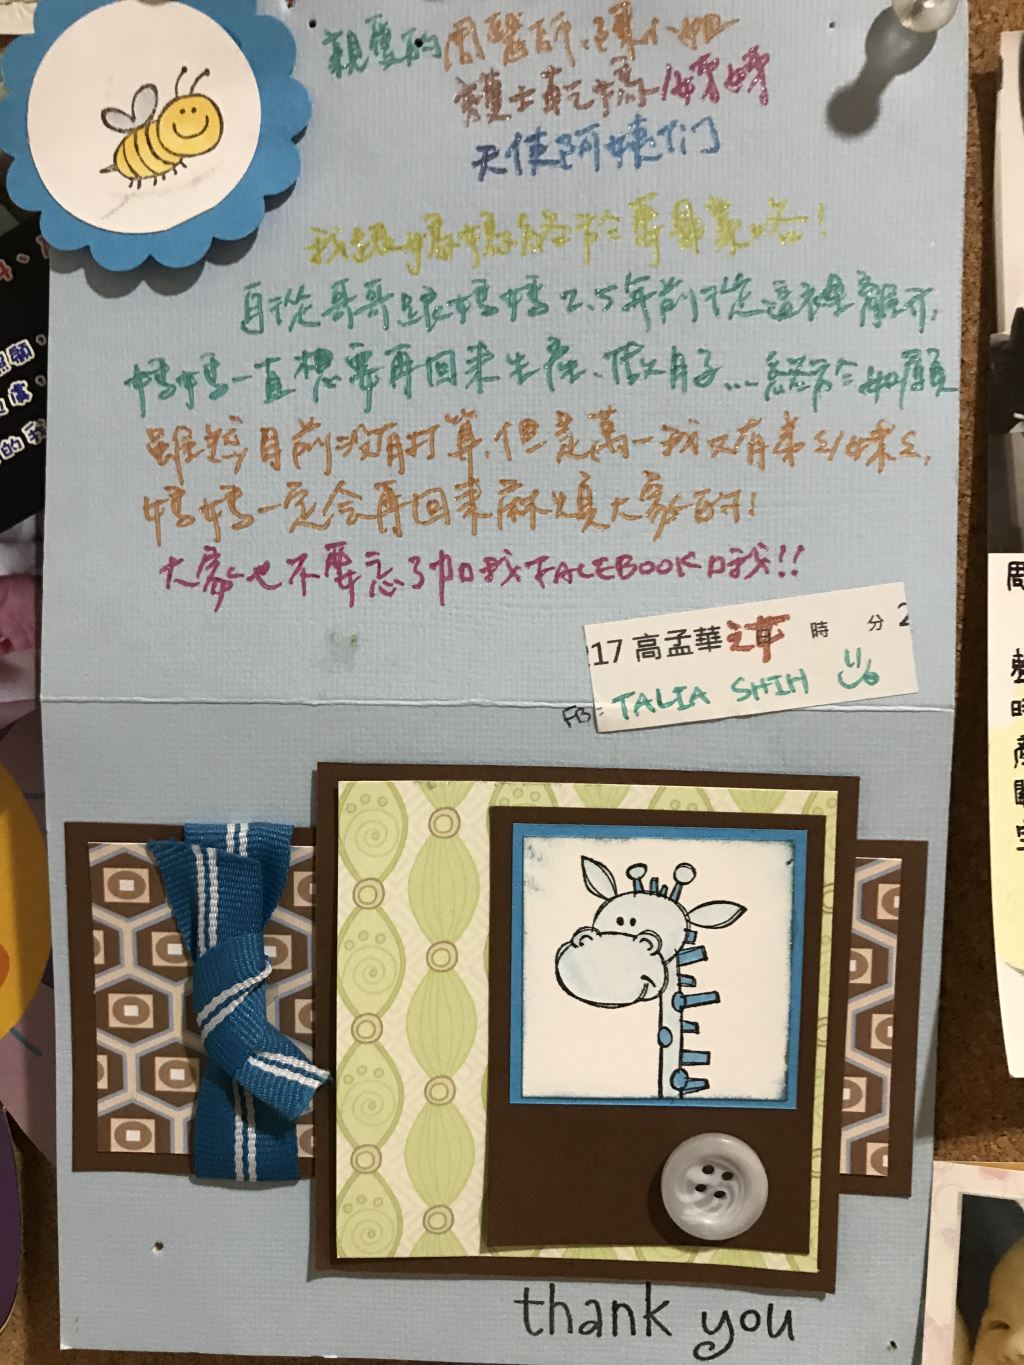 親愛的周醫師、陳小姐
護士乾媽
天使阿姨们
我跟媽媽終於要畢業咯!
自從哥哥跟媽媽2.5年前從這裡離開,
媽媽一直想要再回來生產、做月子...終於如願
雖然目前沒有打算,但是萬一我又有弟弟/妹妹,
媽媽一定会再回來麻煩大家的!
大家也不要忘了加我FACEBOOK哦!!
17 高孟華之 時 分 2
FB: TALIA SHIH
thank you
周